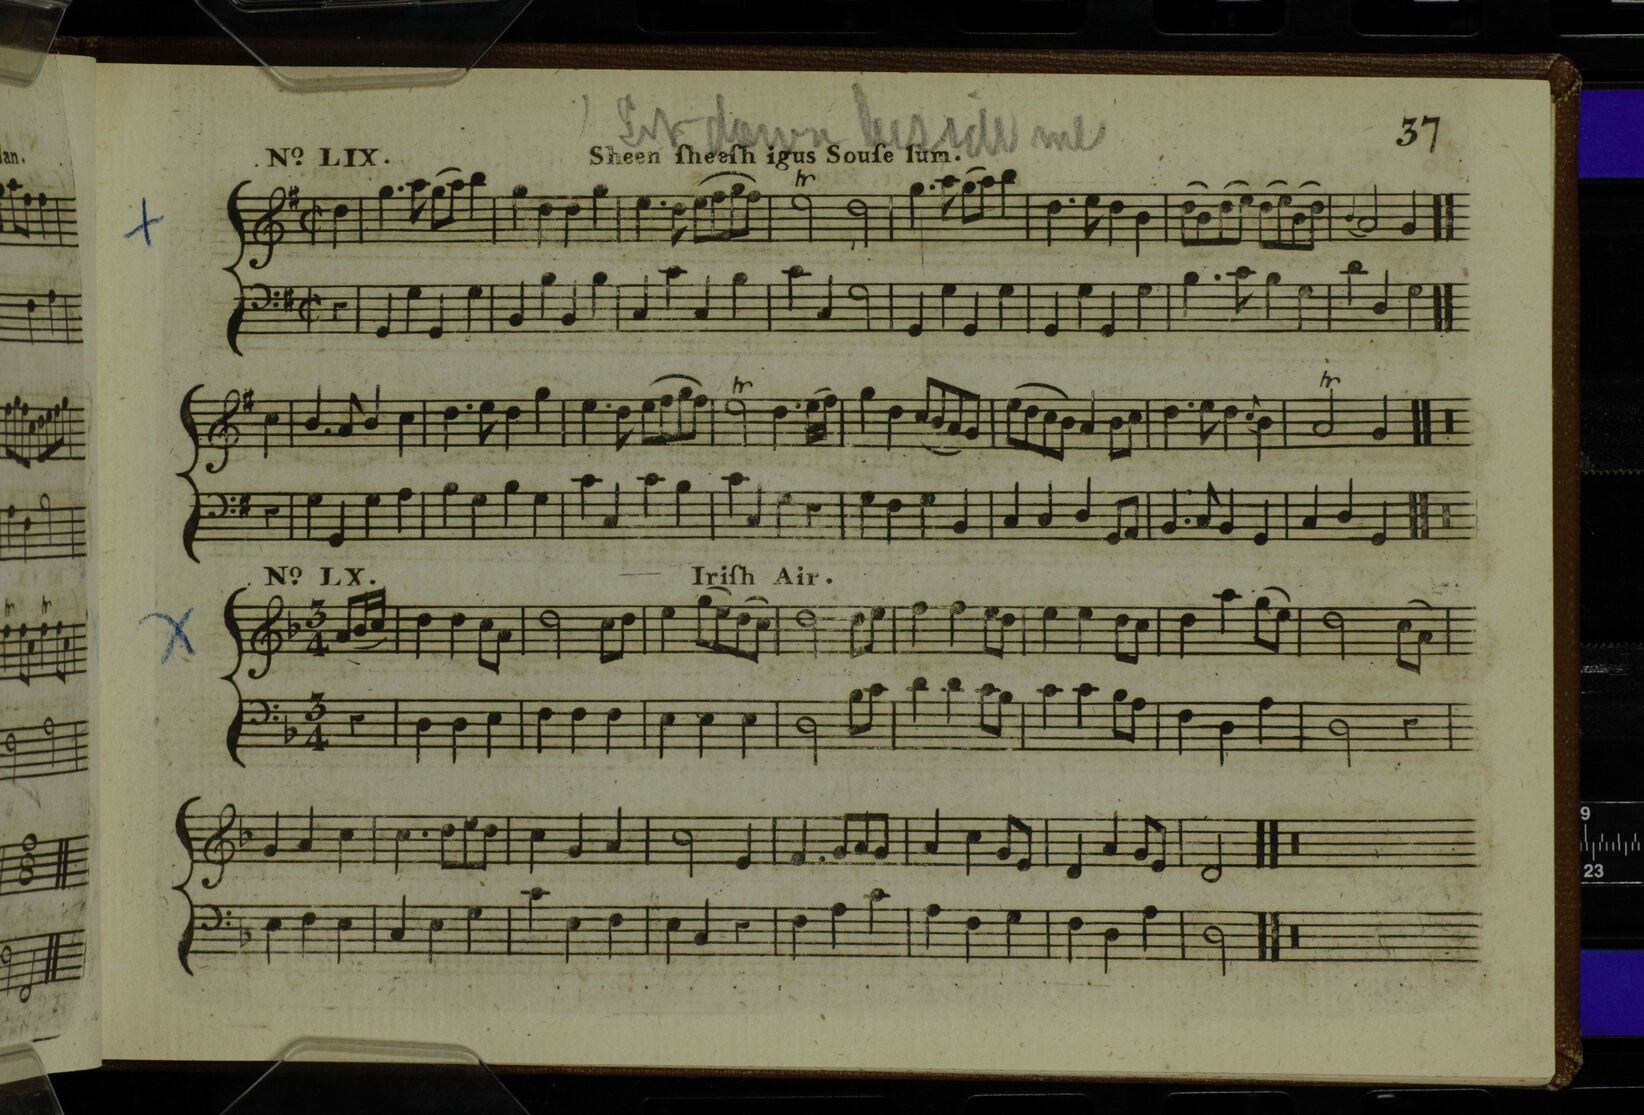 Sit down beside me
37
lan.
Nº LIX.
Sheen ſheeſh igus Souſe ſum.
tr
tr
Nº LX.
Iriſh Air.
3
4
3
4
9
23